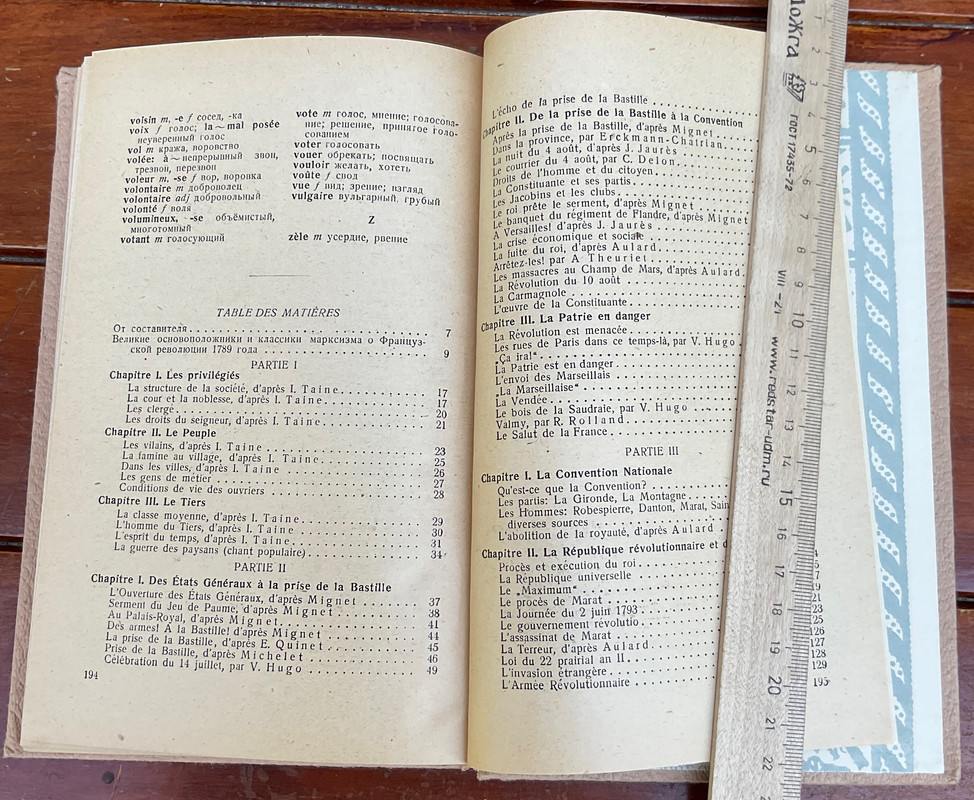 voisin m, -e f сосед, -ка
voix f голос; la ~ mal posée
неуверенный голос
vol m кража, воровство
volée: à ~ непрерывный звон,
трезвон, перезвон
voleur m, -se f вор, воровка
volontaire m доброволец
volontaire adj добровольный
volonté f воля
volumineux, -se объёмистый,
многотомный
votant m голосующий
vote m голос, мнение; голосова-
ние; решение, принятое голо-
сованием
voter голосовать
vouer обрекать; посвящать
vouloir желать, хотеть
voûte f свод
vue f вид; зрение; взгляд
vulgaire вульгарный, грубый
Z
zèle m усердие, рвение
TABLE DES MATIÈRES
От составителя 7
Великие основоположники и классики марксизма о Француз-
ской революции 1789 года 9
PARTIE I
Chapitre I. Les privilégiés
La structure de la société, d'après I. Taine 17
La cour et la noblesse, d'après I. Taine 17
Les clergé 20
Les droits du seigneur, d'après I. Taine 21
Chapitre II. Le Peuple
Les vilains, d'après I. Taine 23
La famine au village, d'après I. Taine 25
Dans les villes, d'après I. Taine 26
Les gens de métier 27
Conditions de vie des ouvriers 28
Chapitre III. Le Tiers
La classe moyenne, d'après I. Taine 29
L'homme du Tiers, d'après I. Taine 30
L'esprit du temps, d'après I. Taine 31
La guerre des paysans (chant populaire) 34
PARTIE II
Chapitre I. Des États Généraux à la prise de la Bastille
L'Ouverture des États Généraux, d'après Mignet 37
Serment du Jeu de Paume, d'après Mignet 38
Au Palais-Royal, d'après Mignet 41
Des armes! À la Bastille! d'après Mignet 44
La prise de la Bastille, d'après E. Quinet 45
Prise de la Bastille, d'après Michelet 46
Célébration du 14 juillet, par V. Hugo 49
194
L'écho de la prise de la Bastille
Chapitre II. De la prise de la Bastille à la Convention
Après la prise de la Bastille, d'après Mignet
Dans la province, par Erckmann-Chatrian
La nuit du 4 août, d'après J. Jaurès
Le courrier du 4 août, par C. Delon
Droits de l'homme et du citoyen
La Constituante et ses partis
Les Jacobins et les clubs
Le roi prête le serment, d'après Mignet
Le banquet du régiment de Flandre, d'après Mignet
A Versailles! d'après J. Jaurès
La crise économique et sociale
La fuite du roi, d'après Aulard
Arrêtez-les! par A Theuriet
Les massacres au Champ de Mars, d'après Aulard
La Révolution du 10 août
La Carmagnole
L'œuvre de la Constituante
Chapitre III. La Patrie en danger
La Révolution est menacée
Les rues de Paris dans ce temps-là, par V. Hugo
„Ça ira!“
La Patrie est en danger
L'envoi des Marseillais
„La Marseillaise“
La Vendée
Le bois de la Saudraie, par V. Hugo
Valmy, par R. Rolland
Le Salut de la France
PARTIE III
Chapitre I. La Convention Nationale
Qu'est-ce que la Convention?
Les partis: La Gironde, La Montagne
Les Hommes: Robespierre, Danton, Marat, Sain
diverses sources
L'abolition de la royauté, d'après Aulard
Chapitre II. La République révolutionnaire et d
Procès et exécution du roi
La République universelle
Le „Maximum“
Le procès de Marat
La Journée du 2 juin 1793
Le gouvernement révolutio
L'assassinat de Marat
La Terreur, d'après Aulard
Loi du 22 prairial an II
L'invasion étrangère
L'Armée Révolutionnaire
7
19
21
23
125
126
127
128
129
195
ГОСТ 17435-72
VIII -21
www.redstar-udm.ru
2
3
4
5
6
7
8
9
10
11
12
13
14
15
16
17
18
19
20
21
22